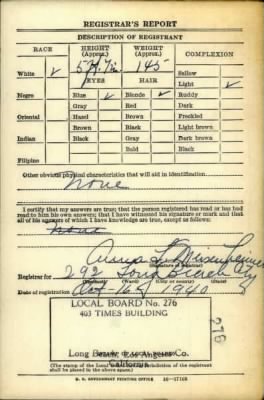 REGISTRAR'S REPORT
DESCRIPTION OF REGISTRANT
RACE
HEIGHT (Approx.)
WEIGHT (Approx.)
COMPLEXION
5 ft. 7 in.
145
White ✓
EYES
HAIR
Sallow
Light ✓
Negro
Blue ✓
Blonde ✓
Ruddy
Gray
Red
Dark
Oriental
Hazel
Brown
Freckled
Brown
Black
Light brown
Indian
Black
Gray
Dark brown
Bald
Black
Filipino
Other obvious physical characteristics that will aid in identification
None
I certify that my answers are true; that the person registered has read or has had
read to him his own answers; that I have witnessed his signature or mark and that
all of his answers of which I have knowledge are true, except as follows:
None
(Signature of registrar)
Registrar for 292 Long Beach
Date of registration Oct 16, 1940
LOCAL BOARD No. 276
403 TIMES BUILDING
276
Los Angeles Co.
California
(The stamp of the Local Board having jurisdiction of the registrant
shall be placed in the above space.)
U. S. GOVERNMENT PRINTING OFFICE